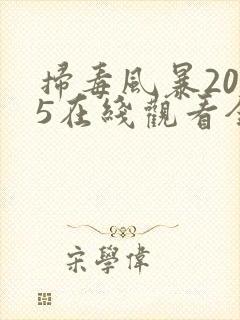 掃毒風暴20
5在綫觀看全
宋學偉